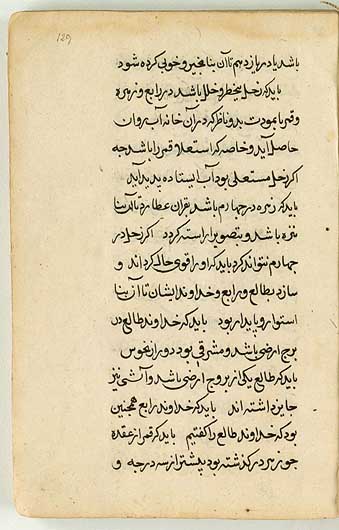 129
باشد یا در یازدهم تا آن بنا بخیر و خوبی کرده شود
باید که زحل بی‌خطر و خلل باشد در رابع و زهره
و قمر با مودت بدو ناظر که در آن خانه آب روان
حاصل آید و خاصه که استعلا قمر را باشد چه
اگر زحل مستعلی بود آب ایستاده پدید آید
باید که زهره در چهارم باشد بقران عطارد تا آن بنا
منزه باشد و بتصویر آراسته گردد اگر زحل در
چهارم نتواند کرد باید که او را قوی حال گرداند و
سازد بطالع و رابع و خداوند ایشان تا آن بنا
استوار و پایدار بود باید که خداوند طالع در
برج ارضی باشد و مشرقی بود دور از نحوس
باید که طالع یکی از بروج ارضی باشد و آتشی نیز
جایز داشته‌اند باید که خداوند رابع همچنین
بود که خداوند طالع را گفتیم باید که قمر از عقده
جوزهر در گذشته بود بیشتر از سه درجه و